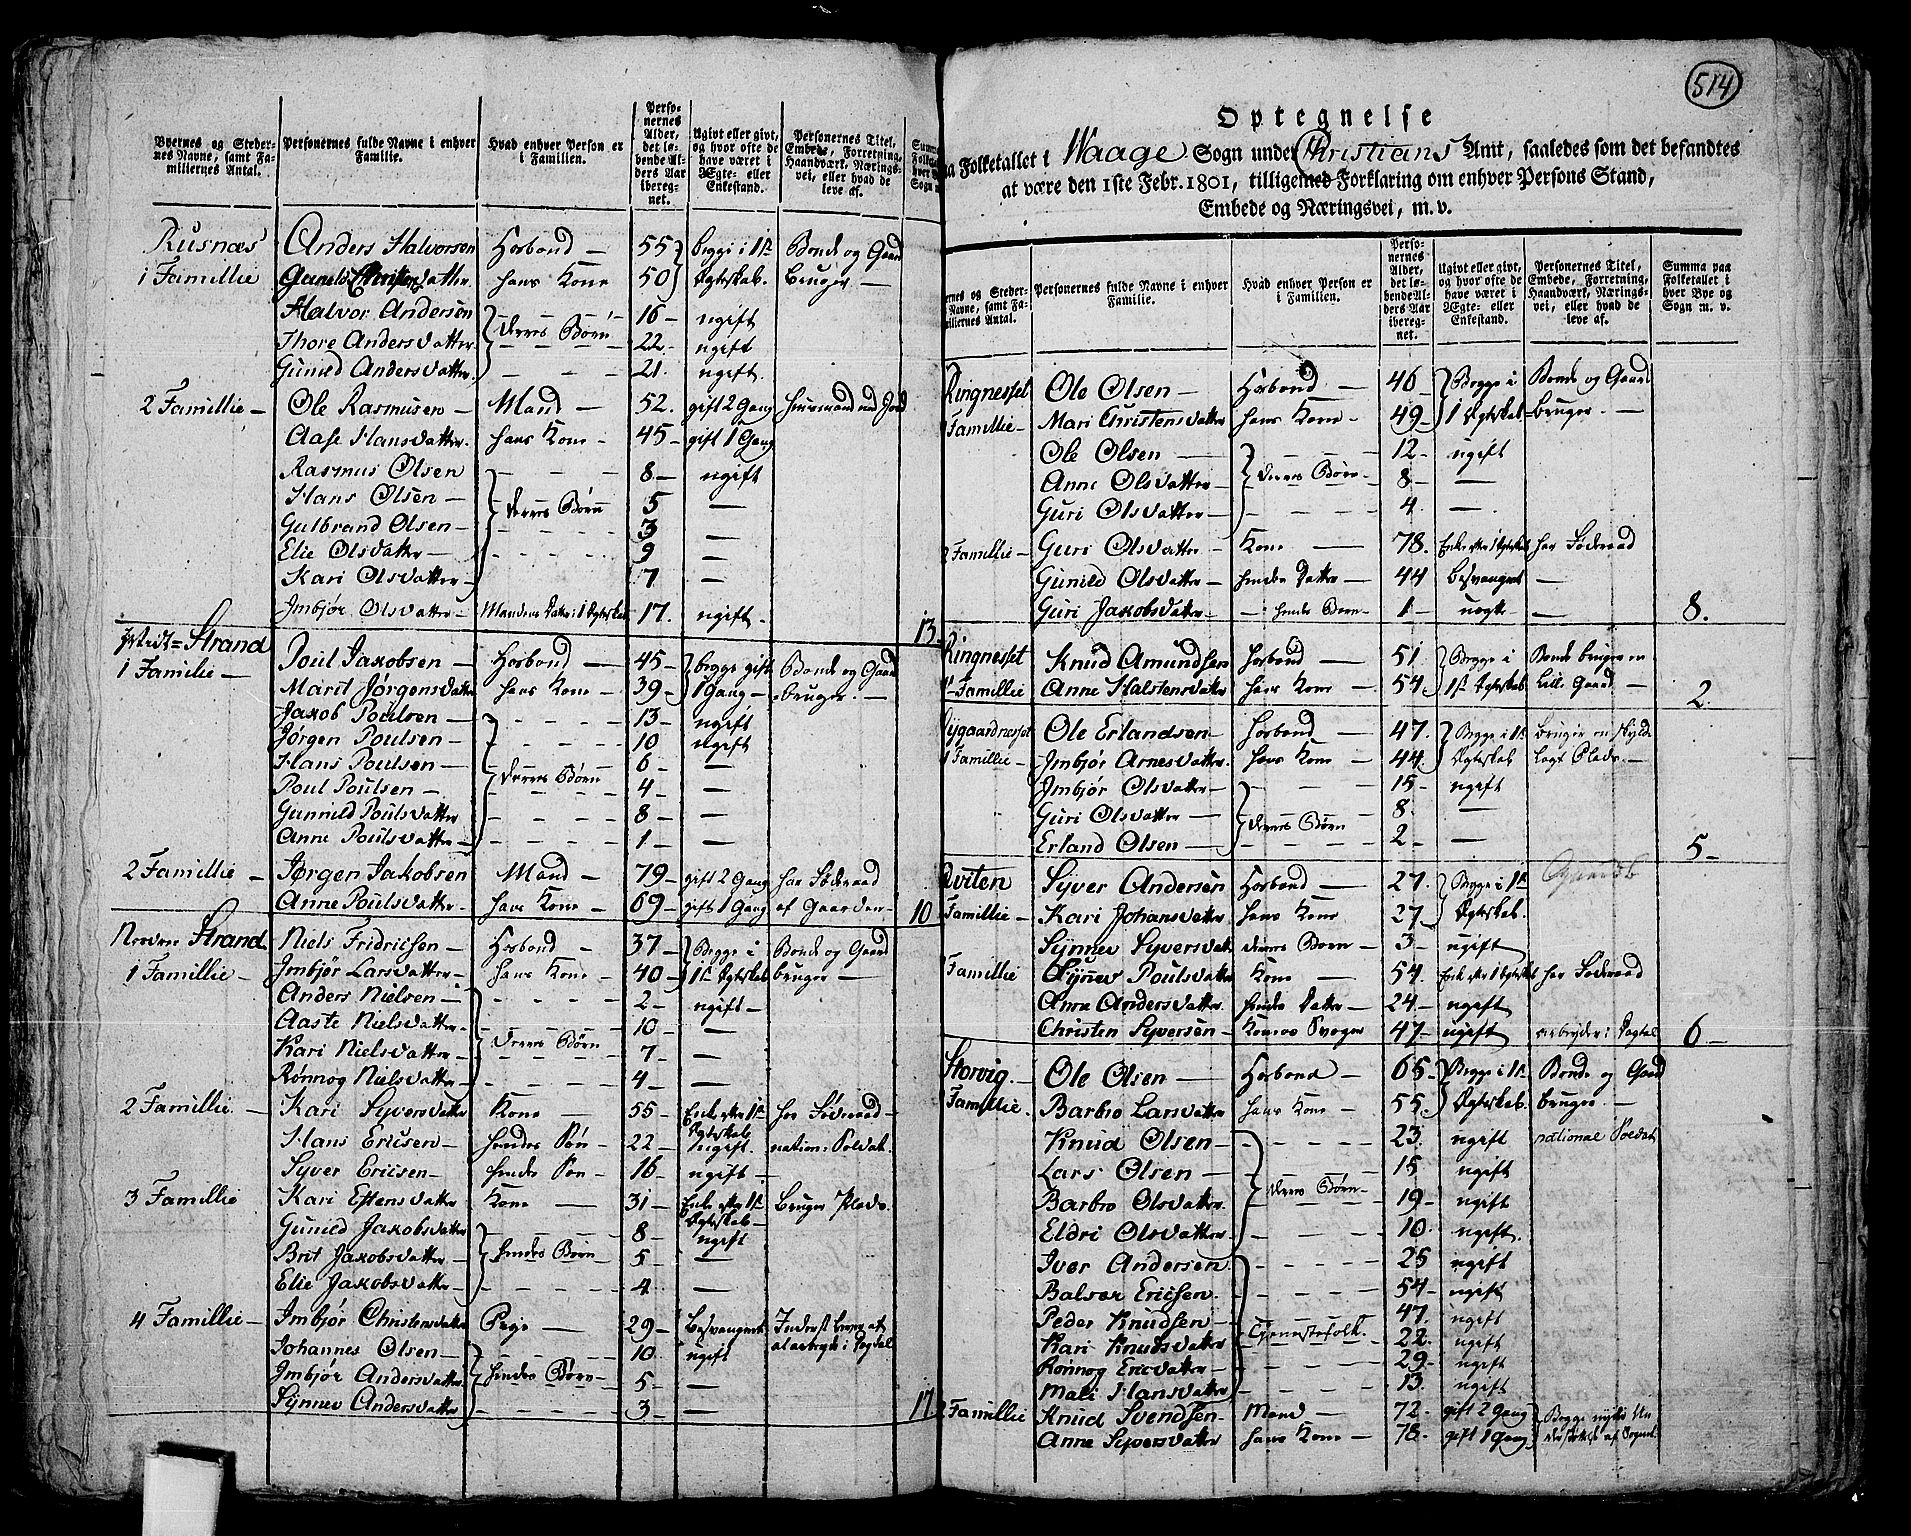 Byernes og Stedernes Navne, samt Familiernes Antal. | Personernes fulde Navne i enhver Familie. | Hvad enhver Person er i Familien. | Personernes Alder, det løbende Alders Aar iberegnet. | Ugivt eller givt, og hvor ofte de have været i Ægte- eller Enkestand. | Personernes Titel, Embede, Forretning, Haandværk, Næringsvei, eller hvad de leve af.
Rusnæs | Anders Halvorsen | Hosbond — | 55 | begge i 1ste | Bonde og Gaard
1 Famillie | Gunild Datter | hans Kone | 50 | Egteskab. | bruger —
Halvor Andersen | 16 - | ugift
Thore Andersdatter | deres Børn | 22. - | ugift
Gunild Andersdatter. | 21. | ugift.
2 Famillie — | Ole Rasmusen — | Mand — | 52. | gift 2 Gang | huusmand med Jord
Aase Hansdatter. | hans Kone - | 45 - | gift 1 Gang
Rasmus Olsen | 8 - | ugift
Hans Olsen — | deres Børn | 5 | —
Gulbrand Olsen — | 3 | —
Elie Olsdatter — | 9 | —
Kari Olsdatter — | 7 | —
Imbjør Olsdatter — | Mandens datter i 1 Egteskab | 17. | ugift. | 13.
Strand | Poul Jakobsen — | Hosbond — | 45 - | begge gift | Bonde og Gaard
1 Familie — | Marit Jørgensdatter | hans Kone - | 39 - | 1 Gang — | bruger. —
Jakob Poulsen — | 13 - | ugift
Jørgen Poulsen — | 10 | ugift
Hans Poulsen — | 6 - | —
Poul Poulsen — | deres Børn | 4 - | —
Gunnild Poulsdatter | 8 - | —
Anne Poulsdatter — | 1 - | —
2 Famillie — | Jørgen Jakobsen | Mand — | 79 - | gift 2 Gang | har Føderaad
Anne Poulsdatter - | hans Kone - | 69 - | gift 1 Gang | af Gaarden - | 10
Nordre Strand | Niels Fridricsen — | Hosbond — | 37 - | Begge i | Bonde og Gaard
1 Famillie — | Imbjør Larsdatter — | hans Kone - | 40 - | 1ste Egteskab | bruger —
Anders Nielsen — | 2 - | ugift -
Aaste Nielsdatter - | 10 - | —
Kari Nielsdatter — | deres Børn | 7 - | —
Rønnog Nielsdatter — | 4 - | —
2 Famillie. — | Kari Syversdatter | Kone — | 55 - | Enke efter 1ste Egteskab | har Føderaad -
Hans Ericsen — | hendes Søn - | 22 - | ugift. | nation: Soldat.
Syver Ericsen — | hendes Søn - | 16 - | ugift -
3 Famillie | Kari Estensdatter | Kone — | 31 - | Enke efter 1ste Egteskab — | Bruger Plads.
Gunild Jakobsdatter | 8 - | ugift
Brit Jakobsdatter - | hendes Børn | 5 - | —
Elie Jakobsdatter — | 4 - | —
4 Famillie — | Imbjør Christensdatter | Pige — | 29 - | Besvangret
Johannes Olsen — | 10 - | ugift
Imbjør Andersdatter | hendes Børn | 5 - | —
Synnev Andersdatter | 3 - | — | 17
514
Optegnelse
Folketallet i Waage Sogn under Christians Amt, saaledes som det befandtes
at være den 1ste Febr. 1801, tilligemed Forklaring om enhver Persons Stand,
Embede og Næringsvei, m. v.
Personernes fulde Navne i enhver Familie. | Hvad enhver Person er i Familien. | Personernes Alder, det løbende Alders Aar iberegnet. | Ugivt eller givt, og hvor ofte de have været i Ægte- eller Enkestand. | Personernes Titel, Embede, Forretning, Haandværk, Næringsvei, eller hvad de leve af. | Summa paa Folketallet i hver Bye og Sogn m. v.
Ringnesset | Ole Olsen — | Hosbond — | 46 - | Begge i | Bonde og Gaard
Famillie — | Mari Christensdatter | hans Kone - | 49 - | 1 Egteskab | bruger. —
Ole Olsen — | 12 - | ugift
Anne Olsdatter — | deres Børn - | 8 - | —
Guri Olsdatter — | 4. | —
2 Famillie — | Guri Olsdatter — | Kone — | 78. | Enke efter 1 Egteskab | har Føderaad
Gunild Olsdatter — | hendes datter — | 44 | besvangret | —
Guri Jakobsdatter — | hendes Børn - | 1 - | uegte - | — | 8.
Ringnesset | Knud Amundsen | hosbond — | 51. | Begge i | Bonde bruger en
1 Famillie | Anne Halstensdatter | hans Kone — | 54. | 1ste Egteskab | Lille Gaard — | 2.
Ole Erlandsen — | hosbond — | 47. | Begge i 1ste | bruger en skyld
Famillie — | Imbjør Arnesdatter. | hans Kone — | 44. | Egteskab | lagt Plads. —
Imbjør Olsdatter — | 15 - | ugift
Guri Olsdatter — | deres Børn | 8 - | —
Erland Olsen — | 2 - | — | 5 -
Qviten | Syver Andersen | Hosbond — | 27. | Begge i 1ste
Famillie — | Kari Johansdatter | hans Kone | 27 - | Egteskab.
Synnev Syversdat. | deres Børn — | 3 - | ugift
Famillie | Synnev Poulsdatter | Kone — | 54. | Enke efter 1 Egteskab | har Føderaad
Anne Andersdatter — | hendes datter — | 24 - | ugift
Christen Syversen — | Konens Svoger | 47 - | ugift | arbeyder i Dagtal | 6 —
Storvig. — | Ole Olsen — | Hosbond — | 65 - | Begge i 1ste | Bonde og Gaard
Famillie. | Barbro Larsdatter | hans Kone — | 55. | Egteskab. | bruger. —
Knud Olsen — | 23. | ugift | national Soldat
Lars Olsen — | 15 | ugift
Barbro Olsdatter | deres Børn - | 19 - | ugift
Eldri Olsdatter | 10. | ugift.
Iver Andersen | 25 | ugift
Balser Ericsen. | 54 - | ugift
Peder Knudsen — | 47. | ugift
Kari Knutsdatter | Tjenestefolk. | 22. | ugift
Rønnog Ericdatter — | 29 - | ugift
Mari Hansdatter | 13. | ugift
Famillie | Knud Svendsen — | Mand — | 72 - | gift 2 Gang
Anne Syversdatter | hans Kone — | 78. | gift 1 Gang